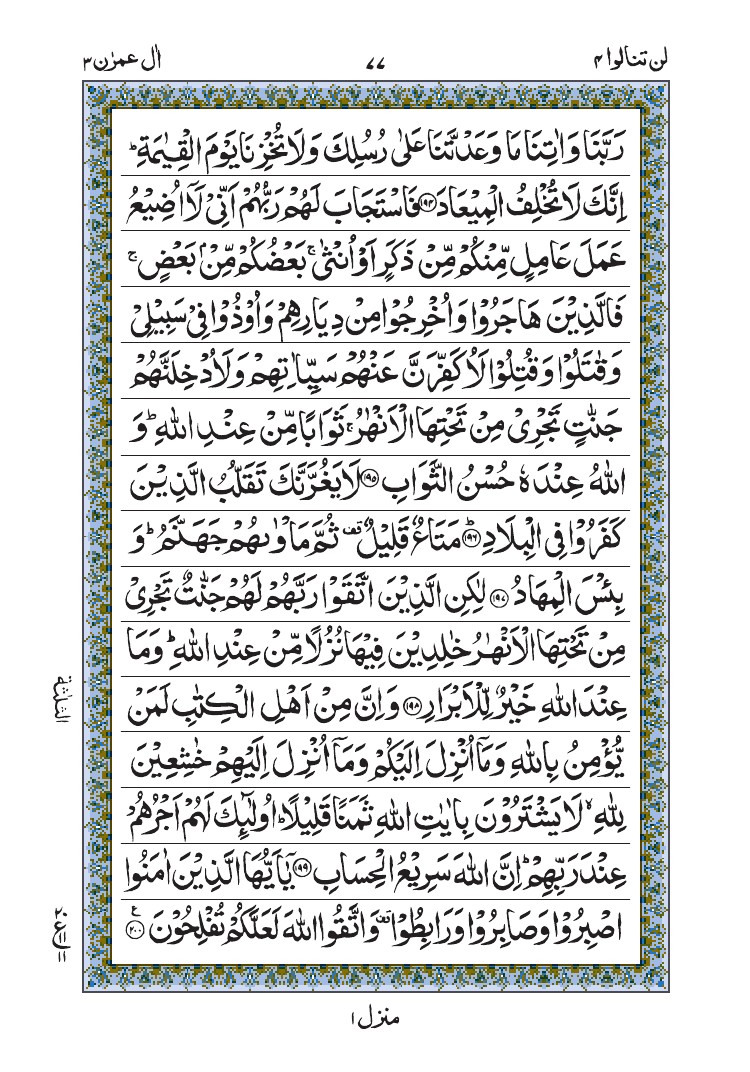 لن تنالوا ۴
۷۷
اٰل عمرٰن ۳
رَبَّنَا وَاٰتِنَا مَا وَعَدْتَّنَا عَلٰى رُسُلِكَ وَلَا تُخْزِنَا يَوْمَ الْقِيٰمَةِ ؕ
اِنَّكَ لَا تُخْلِفُ الْمِيْعَادَ ﴿۱۹۴﴾ فَاسْتَجَابَ لَهُمْ رَبُّهُمْ اَنِّىْ لَاۤ اُضِيْعُ
عَمَلَ عَامِلٍ مِّنْكُمْ مِّنْ ذَكَرٍ اَوْ اُنْثٰى ۚ بَعْضُكُمْ مِّنْۢ بَعْضٍ ۚ
فَالَّذِيْنَ هَاجَرُوْا وَاُخْرِجُوْا مِنْ دِيَارِهِمْ وَاُوْذُوْا فِىْ سَبِيْلِىْ
وَقٰتَلُوْا وَقُتِلُوْا لَاُكَفِّرَنَّ عَنْهُمْ سَيِّاٰتِهِمْ وَلَاُدْخِلَنَّهُمْ
جَنّٰتٍ تَجْرِىْ مِنْ تَحْتِهَا الْاَنْهٰرُ ۚ ثَوَابًا مِّنْ عِنْدِ اللّٰهِ ؕ وَ
اللّٰهُ عِنْدَهٗ حُسْنُ الثَّوَابِ ﴿۱۹۵﴾ لَا يَغُرَّنَّكَ تَقَلُّبُ الَّذِيْنَ
كَفَرُوْا فِى الْبِلَادِ ﴿۱۹۶﴾ؕ مَتَاعٌ قَلِيْلٌ ۟ ثُمَّ مَاْوٰىهُمْ جَهَنَّمُ ؕ وَ
بِئْسَ الْمِهَادُ ﴿۱۹۷﴾ لٰكِنِ الَّذِيْنَ اتَّقَوْا رَبَّهُمْ لَهُمْ جَنّٰتٌ تَجْرِىْ
مِنْ تَحْتِهَا الْاَنْهٰرُ خٰلِدِيْنَ فِيْهَا نُزُلًا مِّنْ عِنْدِ اللّٰهِ ؕ وَمَا
عِنْدَ اللّٰهِ خَيْرٌ لِّلْاَبْرَارِ ﴿۱۹۸﴾ وَاِنَّ مِنْ اَهْلِ الْكِتٰبِ لَمَنْ
يُّؤْمِنُ بِاللّٰهِ وَمَاۤ اُنْزِلَ اِلَيْكُمْ وَمَاۤ اُنْزِلَ اِلَيْهِمْ خٰشِعِيْنَ
لِلّٰهِ ۙ لَا يَشْتَرُوْنَ بِاٰيٰتِ اللّٰهِ ثَمَنًا قَلِيْلًا ؕ اُولٰٓئِكَ لَهُمْ اَجْرُهُمْ
عِنْدَ رَبِّهِمْ ؕ اِنَّ اللّٰهَ سَرِيْعُ الْحِسَابِ ﴿۱۹۹﴾ يٰۤاَيُّهَا الَّذِيْنَ اٰمَنُوا
اصْبِرُوْا وَصَابِرُوْا وَرَابِطُوْا ۟ وَاتَّقُوا اللّٰهَ لَعَلَّكُمْ تُفْلِحُوْنَ ﴿۲۰۰﴾
الثلٰثة
منزل ۱